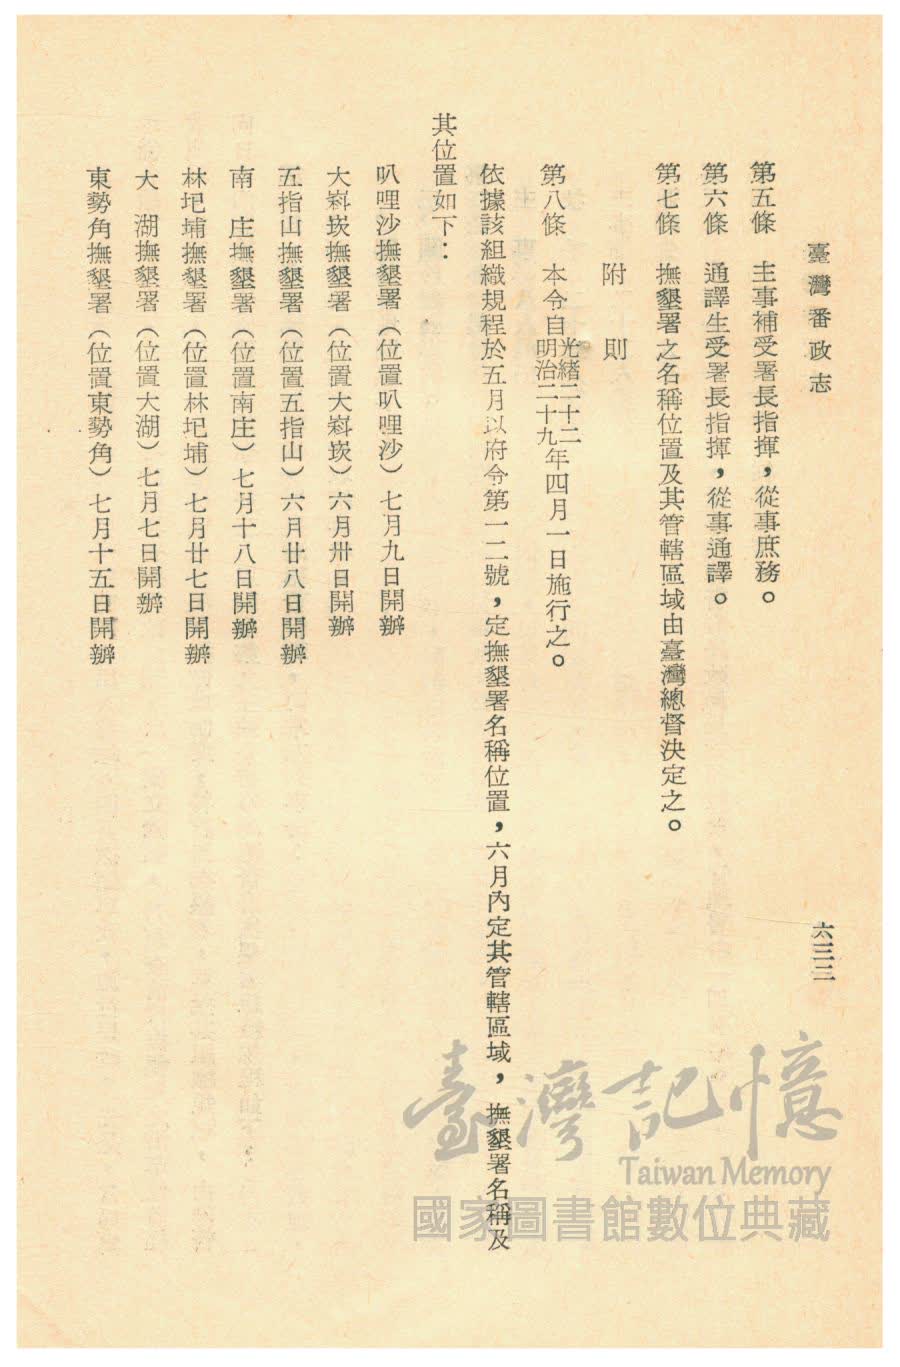 臺灣番政志
六三二
第五條　主事補受署長指揮，從事庶務。
第六條　通譯生受署長指揮，從事通譯。
第七條　撫墾署之名稱位置及其管轄區域由臺灣總督決定之。
附　則
第八條　本令自光緒二十二明治二十九年四月一日施行之。
依據該組織規程於五月以府令第一二號，定撫墾署名稱位置，六月內定其管轄區域，撫墾署名稱及
其位置如下：
叭哩沙撫墾署（位置叭哩沙）七月九日開辦
大嵙崁撫墾署（位置大嵙崁）六月卅日開辦
五指山撫墾署（位置五指山）六月廿八日開辦
南　庄撫墾署（位置南庄）七月十八日開辦
林圯埔撫墾署（位置林圯埔）七月廿七日開辦
大　湖撫墾署（位置大湖）七月七日開辦
東勢角撫墾署（位置東勢角）七月十五日開辦
臺灣記憶
Taiwan Memory
國家圖書館數位典藏